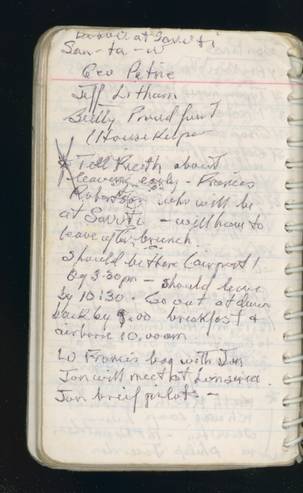 at Savuti
San-ta-w
Geo Petrie
Jeff Litham
Proud foot
(Housekeeper
X Tell Keith about
leaving early - Frances
Robertson who will be
at Savuti - will have to
leave after brunch.
Should be there (airport)
by 3.30pm - should leave
by 10:30. Go out at dawn
back by 9.00 breakfast &
airborne 10.00am
W Francis bag with Jan
Jan will meet at Lanseria
Jan brief pilots -